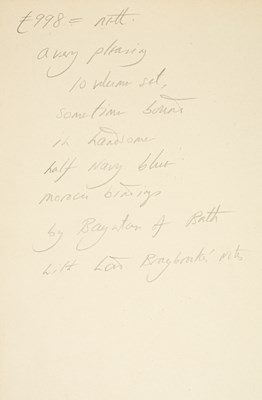 £998 = nett.
a very pleasing
10 volume set,
sometime bound
in handsome
half navy blue
morocco bindings
by Baynton of Bath
with Lord Braybrooke's notes